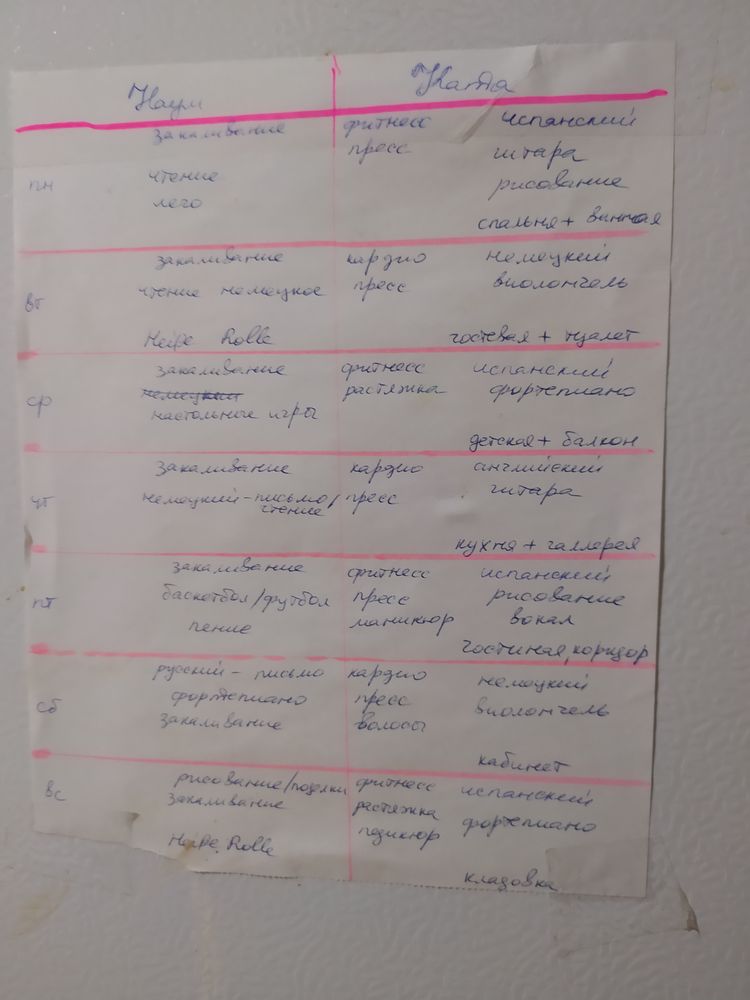 Наум Катя
закаливание фитнесс испанский
пресс гитара
пн чтение рисование
лего
спальня + ванная
закаливание кардио немецкий
вт чтение немецкое пресс виолончель
Heiße Rolle гостевая + туалет
закаливание фитнесс испанский
ср немецкий растяжка фортепиано
настольные игры
детская + балкон
закаливание кардио английский
чт немецкий - письмо/ пресс гитара
чтение
кухня + галлерея
закаливание фитнесс испанский
пт баскетбол/футбол пресс рисование
пение маникюр вокал
гостиная, коридор
русский - письмо кардио немецкий
сб фортепиано пресс виолончель
закаливание волосы
кабинет
вс рисование/поделки фитнесс испанский
закаливание растяжка фортепиано
Heiße Rolle педикюр
кладовка